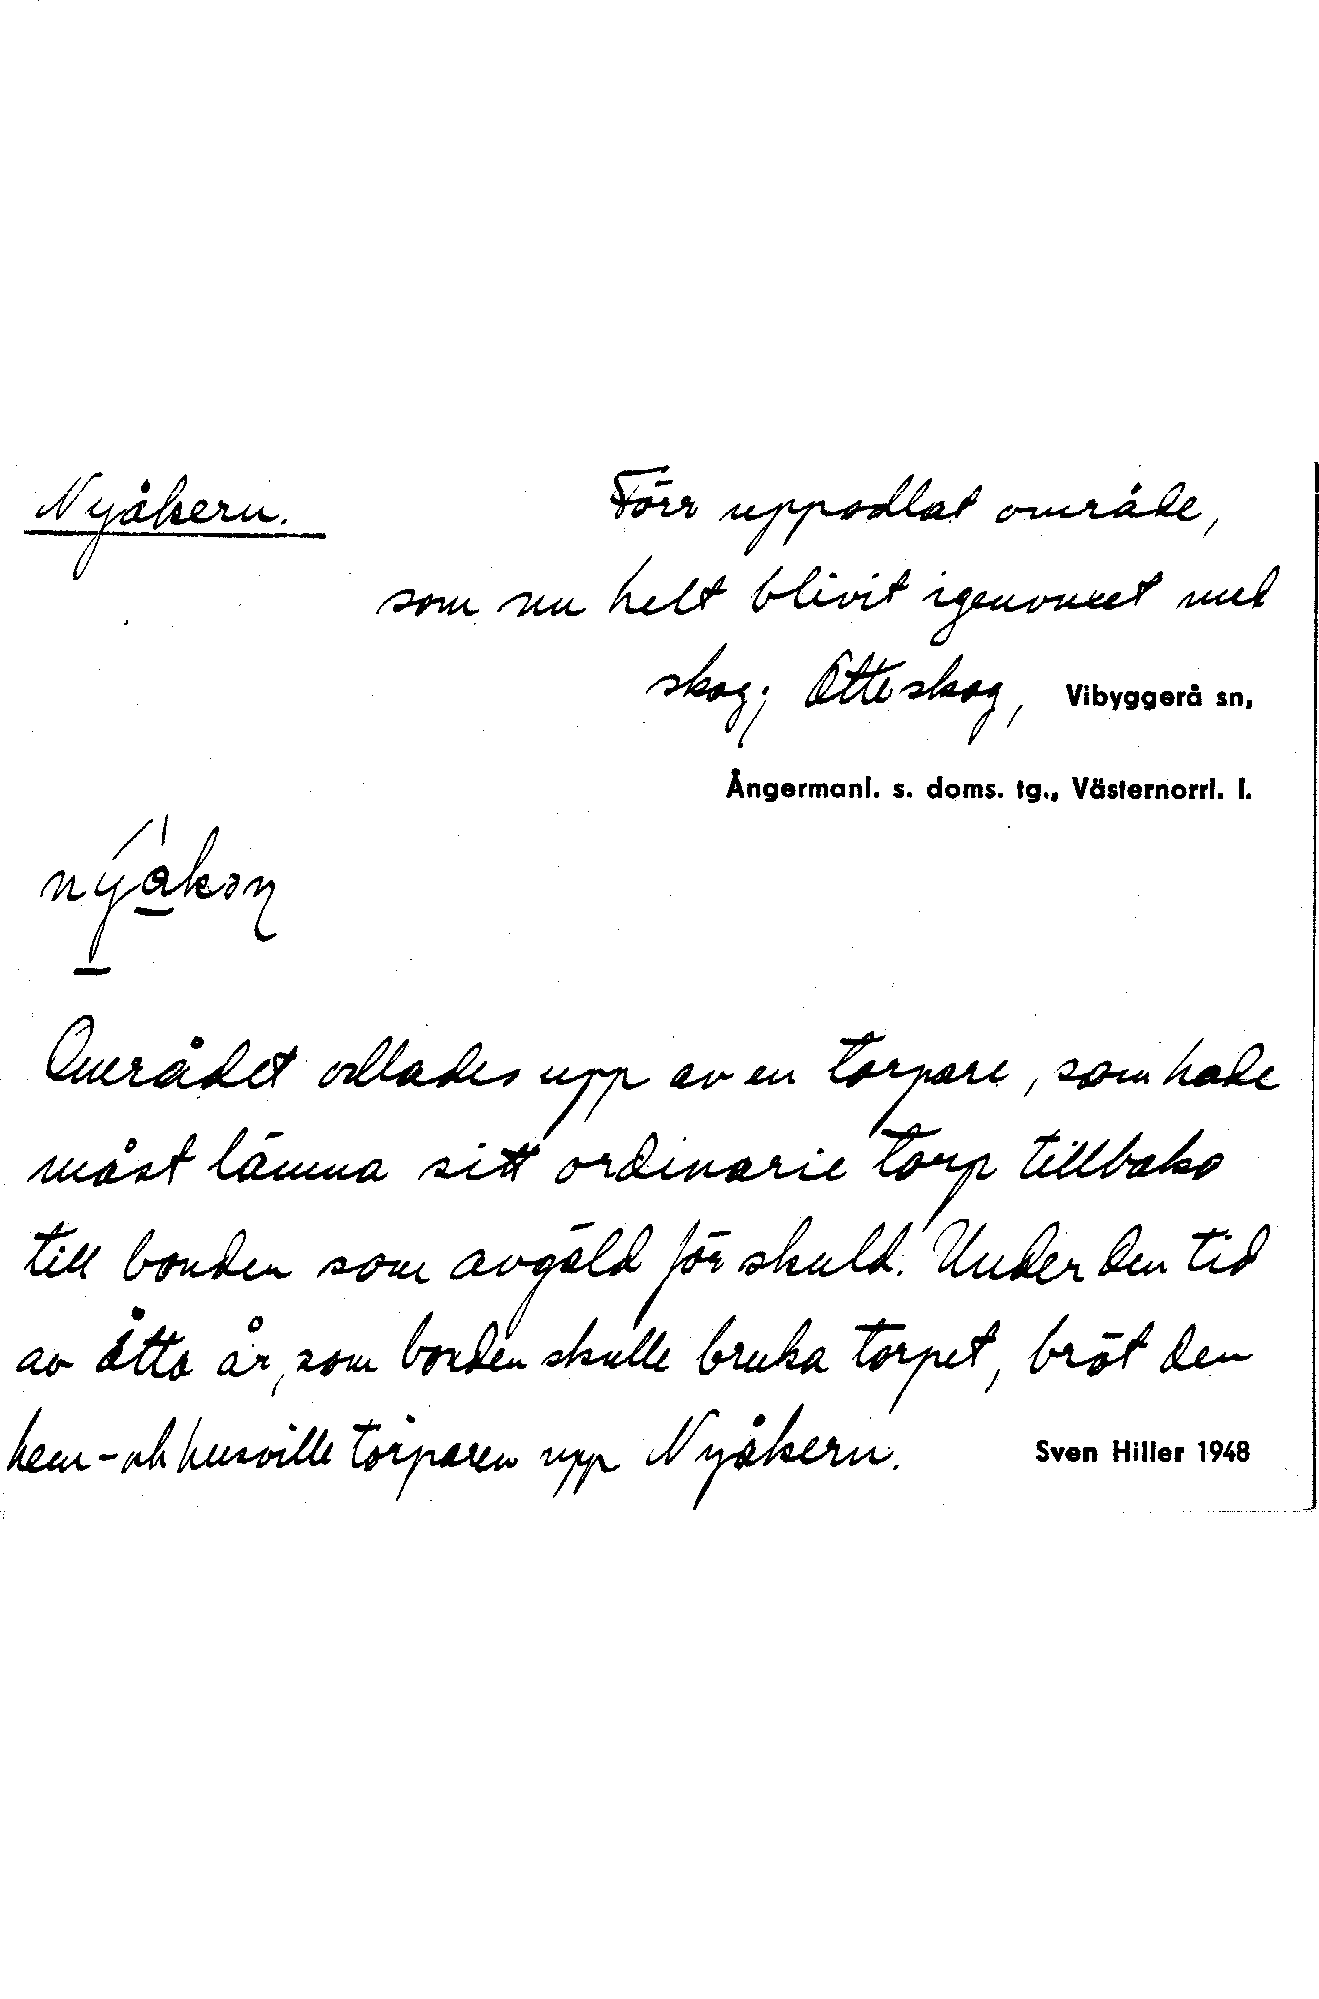 Nyåkern. Förr uppodlat område,
som nu helt blivit igenvuxet med
skog; Otteskog, Vibyggerå sn,
Ångermanl. s. doms. tg., Västernorrl. l.
Området odlades upp av en torpare, som hade
måst lämna sitt ordinarie torp tillbaka
till bonden som avgäld för skuld. Under den tid
av åtta år, som bonden skulle bruka torpet, bröt den
hem- och husville torparen upp Nyåkern. Sven Hiller 1948